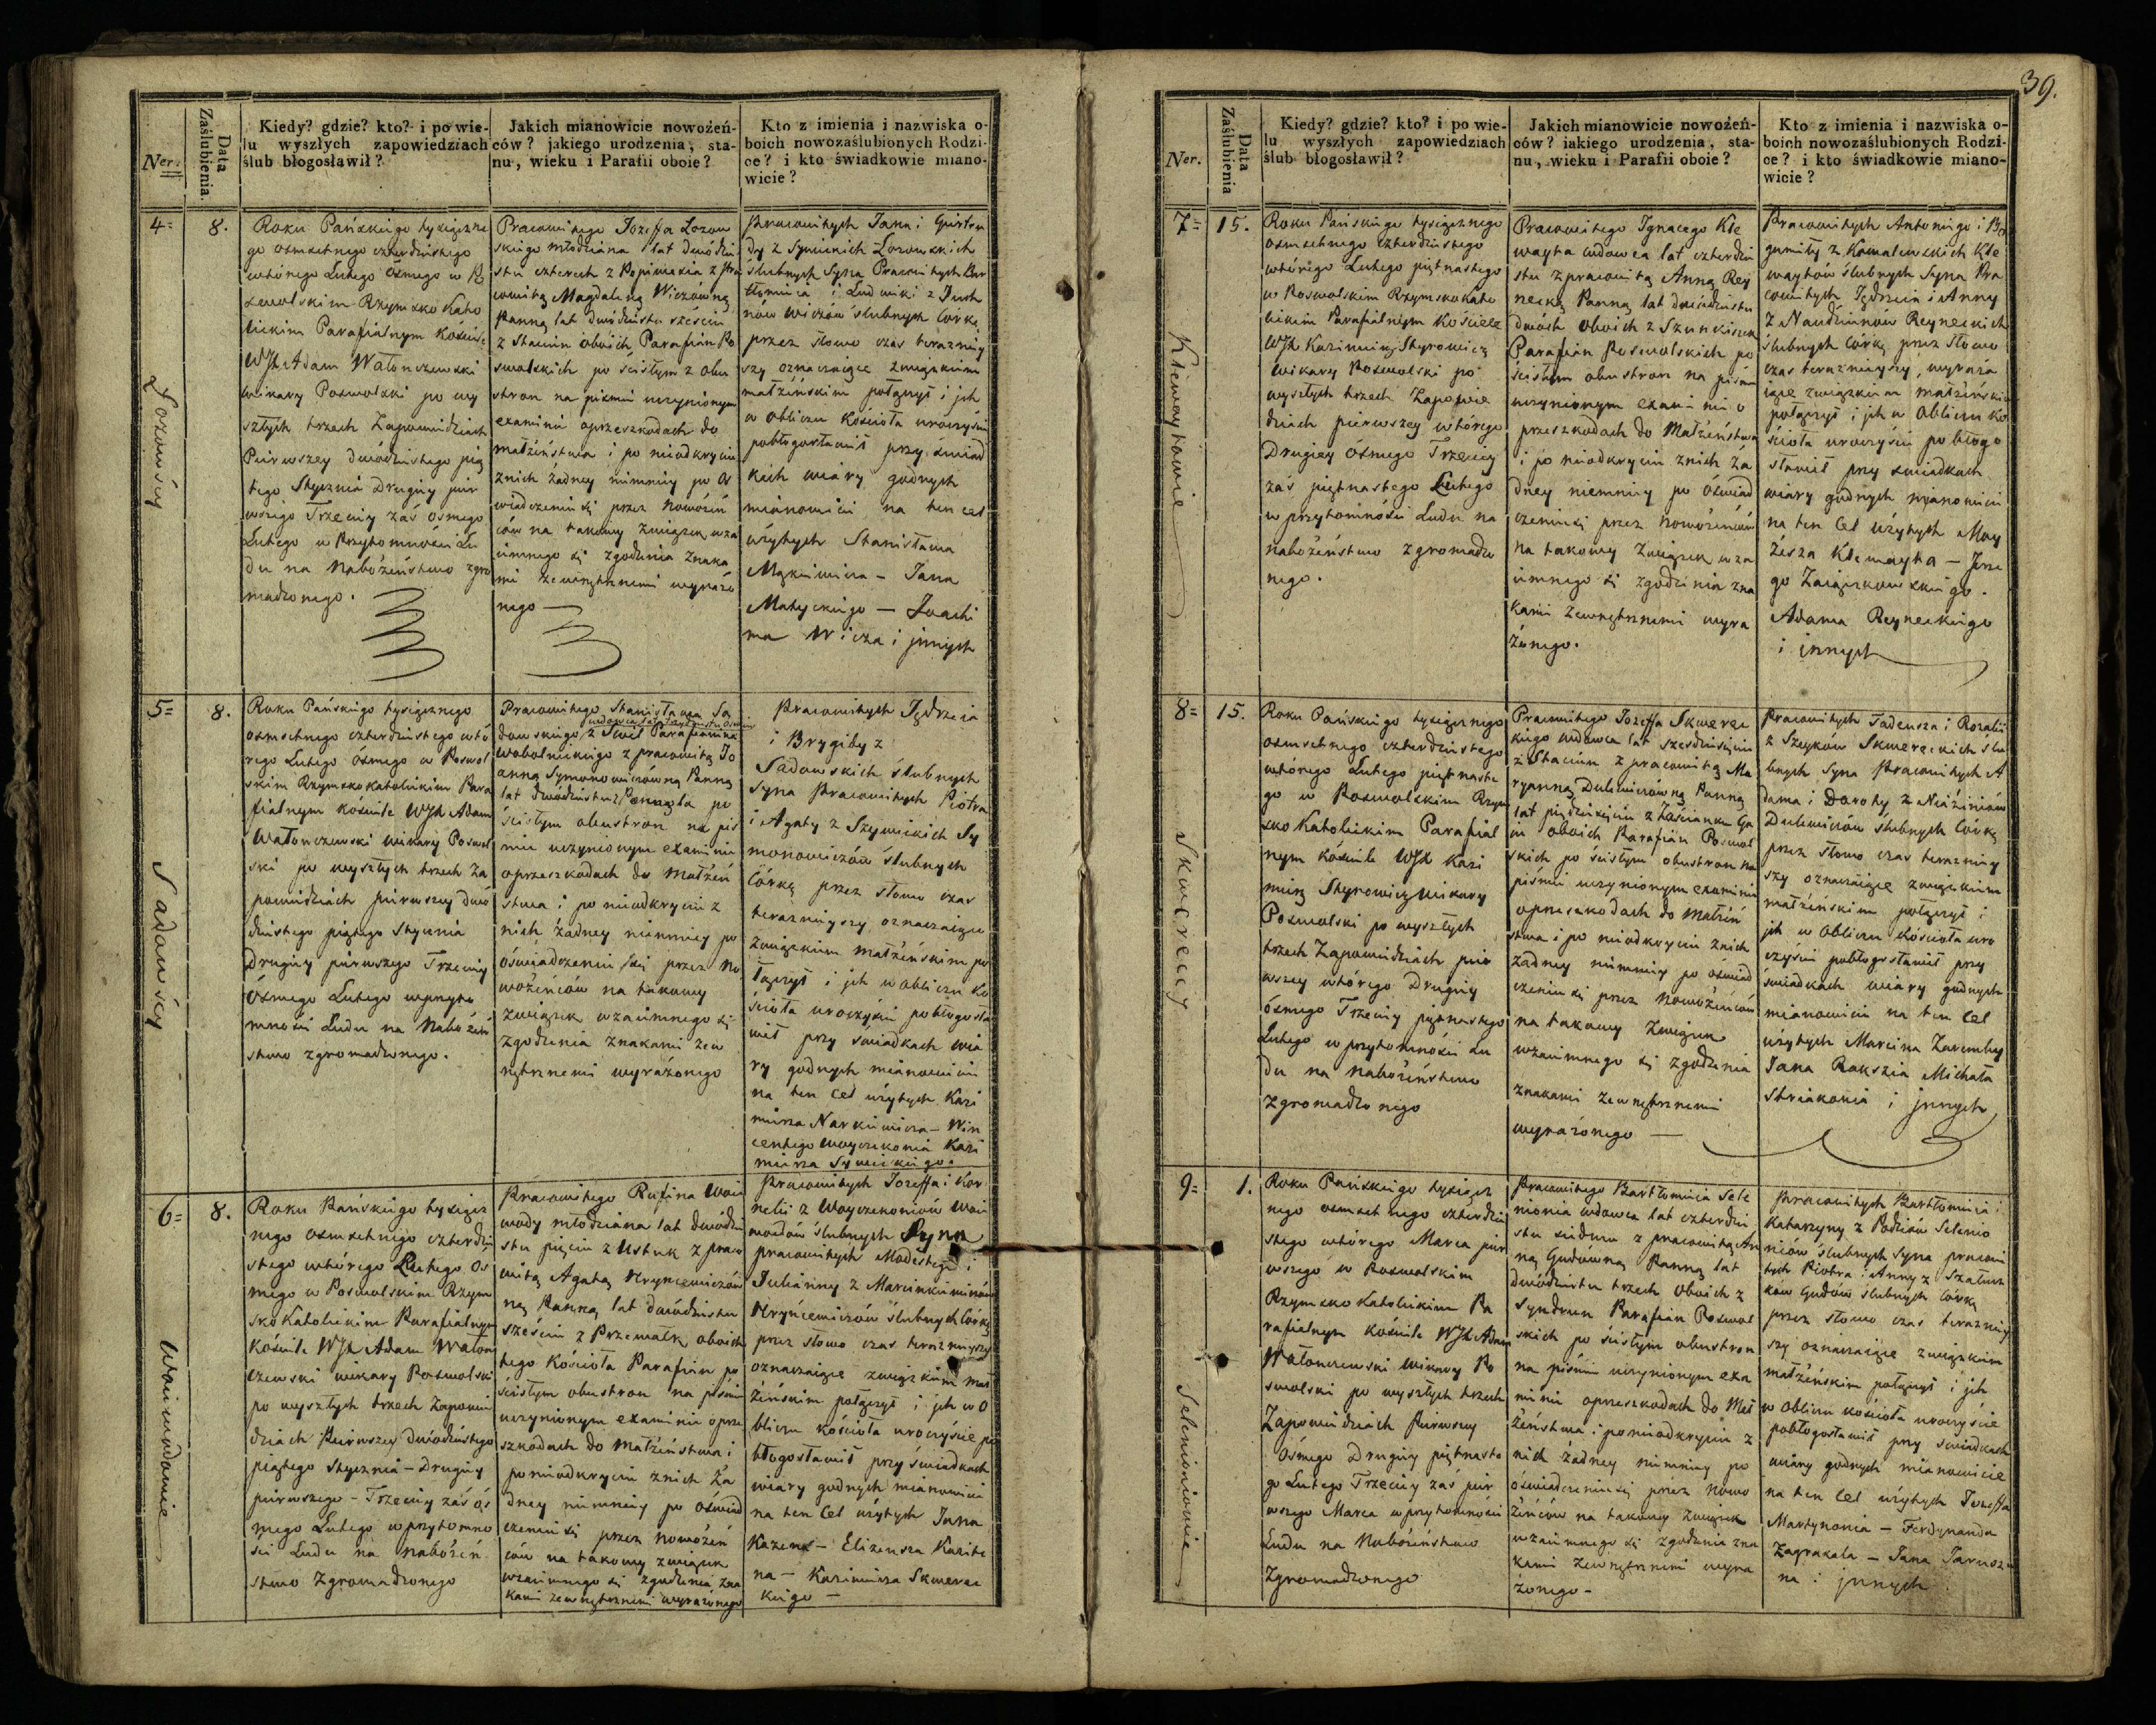 39.
Ner.
Data Zaślubienia.
Kiedy? gdzie? kto? i po wie-
lu wyszłych zapowiedziach
ślub błogosławił?
Jakich mianowicie nowożeń-
ców? jakiego urodzenia, sta-
nu, wieku i Parafii oboie?
Kto z imienia i nazwiska o-
boich nowozaślubionych Rodzi-
ce? i kto świadkowie miano-
wicie?
4
8.
Łozowscy
Roku Pańskiego tysiączne
go osmsetnego czterdziestego
wtórego Lutego Ósmego w Po
swolskim Rzymsko Kato
lickim Parafialnym Kościele
WJX Adam Watonczewski
wikary Poswolski po wy
szłych trzech Zapowiedziach
Pierwszey dwódziestego pią
tego Stycznia Drugiey pier
wszego Trzeciey zaś osmego
Lutego w Przytomności Lu
du na Nabożeństwo zgro
madzonego.
Pracowitego Jozeffa Łozow
skiego młodziana lat dwódzie
stu czterech z Popiwiazia z Pra
cowitą Magdaleną Wiczówną
Panną lat dwódziestu sześciu
z Stacun oboich Parafian Po
swolskich po ścisłym z obu
stron na pismie uczynionym
examinie o przeszkodach do
małżeństwa i po nieodkryciu
znich żadney niemniey po Os
wiadczeniu się przez Nowożeń
ców na takowy Związek wza
iemnego się zgodzenia znaka
mi zewnętrznemi wyrażo
nego —
Pracowitych Jana i Giertru
dy z Symienich Łozowskich
ślubnych Syna Pracowitych Bar
tłomieia i Ludwiki z Jusz
nów Wiczów ślubnych Córkę
przez słowo czas terazniey
szy oznaczaiące związkiem
małżeńskim połączył i ich
w obliczu Kościoła uroczyście
pobłogosławił przy świad
kach wiary godnych
mianowicie na ten cel
użytych Stanisława
Mackiewicza — Jana
Matyckiego — Joachi
ma Wicza i innych
5
8.
Sadowscy
Roku Pańskiego tysiącznego
osmsetnego czterdziestego wtó
rego Lutego ósmego w Poswol
skim Rzymskokatolickim Para
fialnym kościele WJX Adam
Watonczewski wikary Poswol
ski po wyszłych trzech Za
powiedziach pierwszey dwó
dziestego piątego Stycznia
Drugiey pierwszego Trzeciey
Ósmego Lutego wprzyto
mności Ludu na Nabożeń
stwo zgromadzonego.
Pracowitego Stanisława Sa
wdowca lat trzydziestu ośmiu
dowskiego z Swil Parafianina
Wobolnickiego z pracowitą Jo
anną Symonowiczówną Panną
lat dwódziestu po
ścisłym obustron na pis
mie uczynionym examinie
oprzeszkodach do małżeń
stwa i po nieodkryciu z
nich żadney niemniey po
oświadczeniu się przez No
wożeńców na takowy
związek wzaiemnego się
zgodzenia znakami zew
nętrznemi wyrażonego
Pracowitych Jędrzeia
i Brygidy z
Sadowskich ślubnych
Syna Pracowitych Piotra
i Agaty z Szymickich Sy
monowiczów ślubnych
Córkę przez słowo czas
teraznieyszy oznaczaiące
Związkiem małżeńskim po
łączył i ich w obliczu Ko
ścioła uroczyście pobłogosła
wił przy świadkach wia
ry godnych mianowicie
na ten Cel użytych Kazi
mierza Narkiewicza — Win
centego Woyczekonia Kazi
mierza Symickiego.
6
8.
Woiewodowie
Roku Pańskiego tysiącz
nego osmsetnego czterdzie
stego wtórego Lutego Os
mego w Poswolskim Rzym
sko Katolickim Parafialnym
Kościele WJX Adam Waton
czewski wikary Poswolski
po wyszłych trzech Zapowie
dziach Pierwszey dwódziestego
piątego Stycznia — Drugiey
pierwszego — Trzeciey zaś ós
mego Lutego w przytomno
ści Ludu na Nabożeń
stwo Zgromadzonego
Pracowitego Rufina Woie
wody młodziana lat dwódzie
stu pięciu z Ustuk z praco
witą Agatą Hryncewiczów
ną Panną lat dwódziestu
sześciu z Przewałk oboich
tego Kościoła Parafian po
ścisłym obustron na piśmie
uczynionym examinie o prze
szkodach do Małżeństwa i
po nieodkryciu znich ża
dney niemniey po Oświad
czeniu się przez Nowożeń
ców na takowy związek
wzaiemnego się zgodzenia zna
kami zewnętrznemi wyrażonego
Pracowitych Jozeffa i Kor
nelii z Woyczekoniów Woie
wodów ślubnych Syna
pracowitych Modestego i
Julianny z Marcinkiewiczów
Hryńcewiczów ślubnych Córkę
przez słowo czas teraznieyszy
oznaczaiące związkiem Mał
żeńskim połączył i ich w O
bliczu kościoła uroczyście po
błogosławił przy świadkach
wiary godnych mianowicie
na ten Cel użytych Jana
Kazena — Elizeusza Karite
na — Kazimierza Skwerec
kiego —
Ner.
Data Zaślubienia
Kiedy? gdzie? kto? i po wie-
lu wyszłych zapowiedziach
ślub błogosławił?
Jakich mianowicie nowożeń-
ców? iakiego urodzenia, sta-
nu, wieku i Parafii oboie?
Kto z imienia i nazwiska o-
boich nowozaślubionych Rodzi-
ce? i kto świadkowie miano-
wicie?
7
15.
Klewaytowie
Roku Pańskiego tysiącznego
osmsetnego czterdziestego
wtórego Lutego piętnastego
w Poswolskim Rzymskokato
lickim Parafialnym Kościele
WJX Kazimierz Styrowicz
Wikary Poswolski po
wyszłych trzech Zapowie
dziach pierwszey wtórego
Drugiey Ósmego Trzeciey
zaś piętnastego Lutego
w przytomności Ludu na
nabożeństwo zgromadzo
nego.
Pracowitego Ignacego Kle
wayta wdowca lat czterdzie
stu z pracowitą Anną Rey
necką Panną lat dwódziestu
dwóch oboich z Szunkiszek
Parafian Poswolskich po
ścisłym obustron na piśmie
uczynionym examinie o
przeszkodach do Małżeństwa
i po nieodkryciu znich Ża
dney niemniey po Oświad
czeniu się przez Nowożeńców
na takowy Związek wza
iemnego się zgodzenia zna
kami zewnętrznemi wyra
żonego.
Pracowitych Antoniego i Bo
gumiły z Kowalewskich Kle
waytów ślubnych Syna Pra
cowitych Jędrzeia i Anny
z Naudziunów Reyneckich
ślubnych Córkę przez Słowo
czas teraznieyszy, wyraża
iące związkiem małżeńskim
połączył i ich w Obliczu Ko
ścioła uroczyście pobłogo
sławił przy świadkach
wiary godnych mianowicie
na ten Cel użytych Moy
żesza Klewayta — Jerze
go Zaiączkowskiego.
Adama Reyneckiego
i innych
8
15.
Skwereccy
Roku Pańskiego tysiącznego
osmsetnego czterdziestego
wtórego Lutego piętnaste
go w Poswolskim Rzym
sko Katolickim Parafial
nym Kościele WJX Kazi
mierz Styrowicz wikary
Poswolski po wyszłych
trzech Zapowiedziach pier
wszey wtórego Drugiey
ósmego Trzeciey piętnastego
Lutego w przytomności Lu
du na Nabożeństwo
Zgromadzonego
Pracowitego Jozeffa Skwerec
kiego wdowca lat szesdziesięciu
z Stacun z pracowitą Ma
ryanną Dulewiczówną Panną
lat pięćdziesięciu z Zaścianku Ga
iu oboich Parafian Poswol
skich po ścisłym obustron na
piśmie uczynionym examinie
oprzeszkodach do Małżeń
stwa i po nieodkryciu znich
żadney niemniey po oświad
czeniu się przez Nowożeńców
na takowy Związek
wzaiemnego się zgodzenia
znakami zewnętrznemi
wyrażonego —
Pracowitych Tadeusza i Rozalii
z Szeyków Skwereckich ślu
bnych Syna Pracowitych A
dama i Doroty z Nieżiniów
Dulewiczów ślubnych Córkę
przez słowo czas teraźniey
szy oznaczaiące związkiem
małżeńskim połączył i
ich w obliczu Kościoła uro
czyście pobłogosławił przy
świadkach wiary godnych
mianowicie na ten Cel
użytych Marcina Zaremby
Jana Rokszia Michała
Striakonia i innych
9
1.
Seleniioniowie
Roku Pańskiego tysiącz
nego osmsetnego czterdzie
stego wtórego Marca pier
wszego w Poswolskim
Rzymsko Katolickim Pa
rafialnym kościele WJX Adam
Watonczewski Wikary Po
swolski po wyszłych trzech
Zapowiedziach Pierwszey
Ósmego Drugiey piętnaste
go Lutego Trzeciey zaś pier
wszego Marca w przytomności
Ludu na Nabożeństwo
Zgromadzonego
Pracowitego Bartłomieia Sele
nionia wdowca lat czterdzie
stu siedmiu z pracowitą An
ną Gudówną Panną lat
dwódziestu trzech oboich z
Syndrun Parafian Poswol
skich po ścisłym obustron
na piśmie uczynionym exa
minie oprzeszkodach do Mał
żeństwa i po nieodkryciu z
nich żadney niemniey po
oświadczeniu się przez Nowo
żeńców na takowy Związek
wzaiemnego się zgodzenia zna
kami zewnętrznemi wyra
żonego —
Pracowitych Bartłomieia i
Katarzyny z Podziów Selenio
niów ślubnych Syna pracowi
tych Piotra i Anny z Szatusz
ków Gudów ślubnych Córkę
przez słowo czas teraźniey
szy oznaczaiące związkiem
małżeńskim połączył i ich
w Obliczu kościoła uroczyście
pobłogosławił przy świadkach
wiary godnych mianowicie
na ten Cel użytych Jozeffa
Martynonia — Ferdynanda
Zagrakala — Jana Jarusz
na i innych